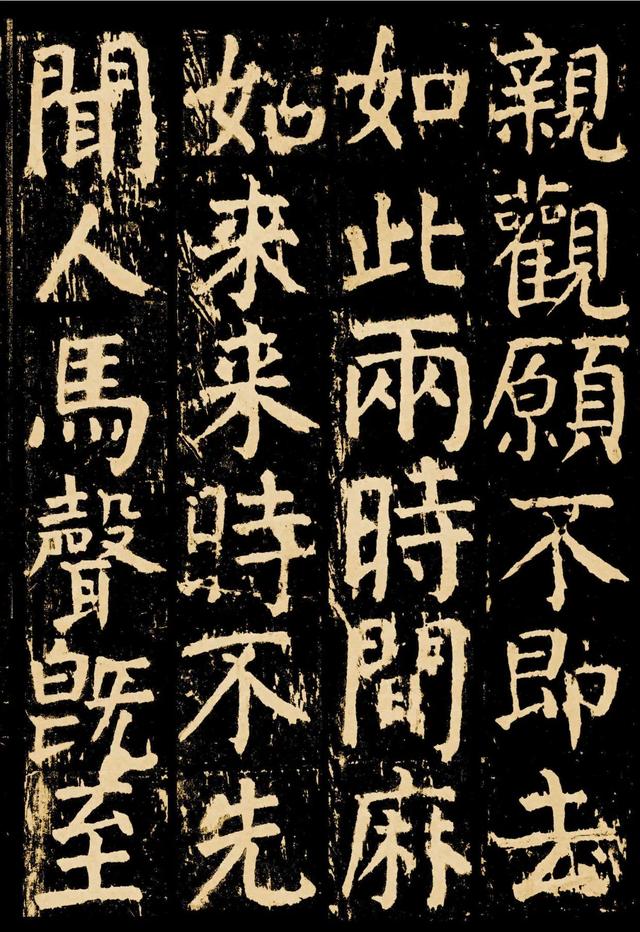 親觀願不即去
如此兩時間麻
如来来時不先
聞人馬聲既至